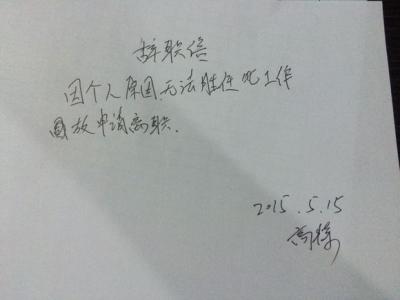 辞职信
因个人原因,无法胜任此工作
故申请离职.
2015.5.15